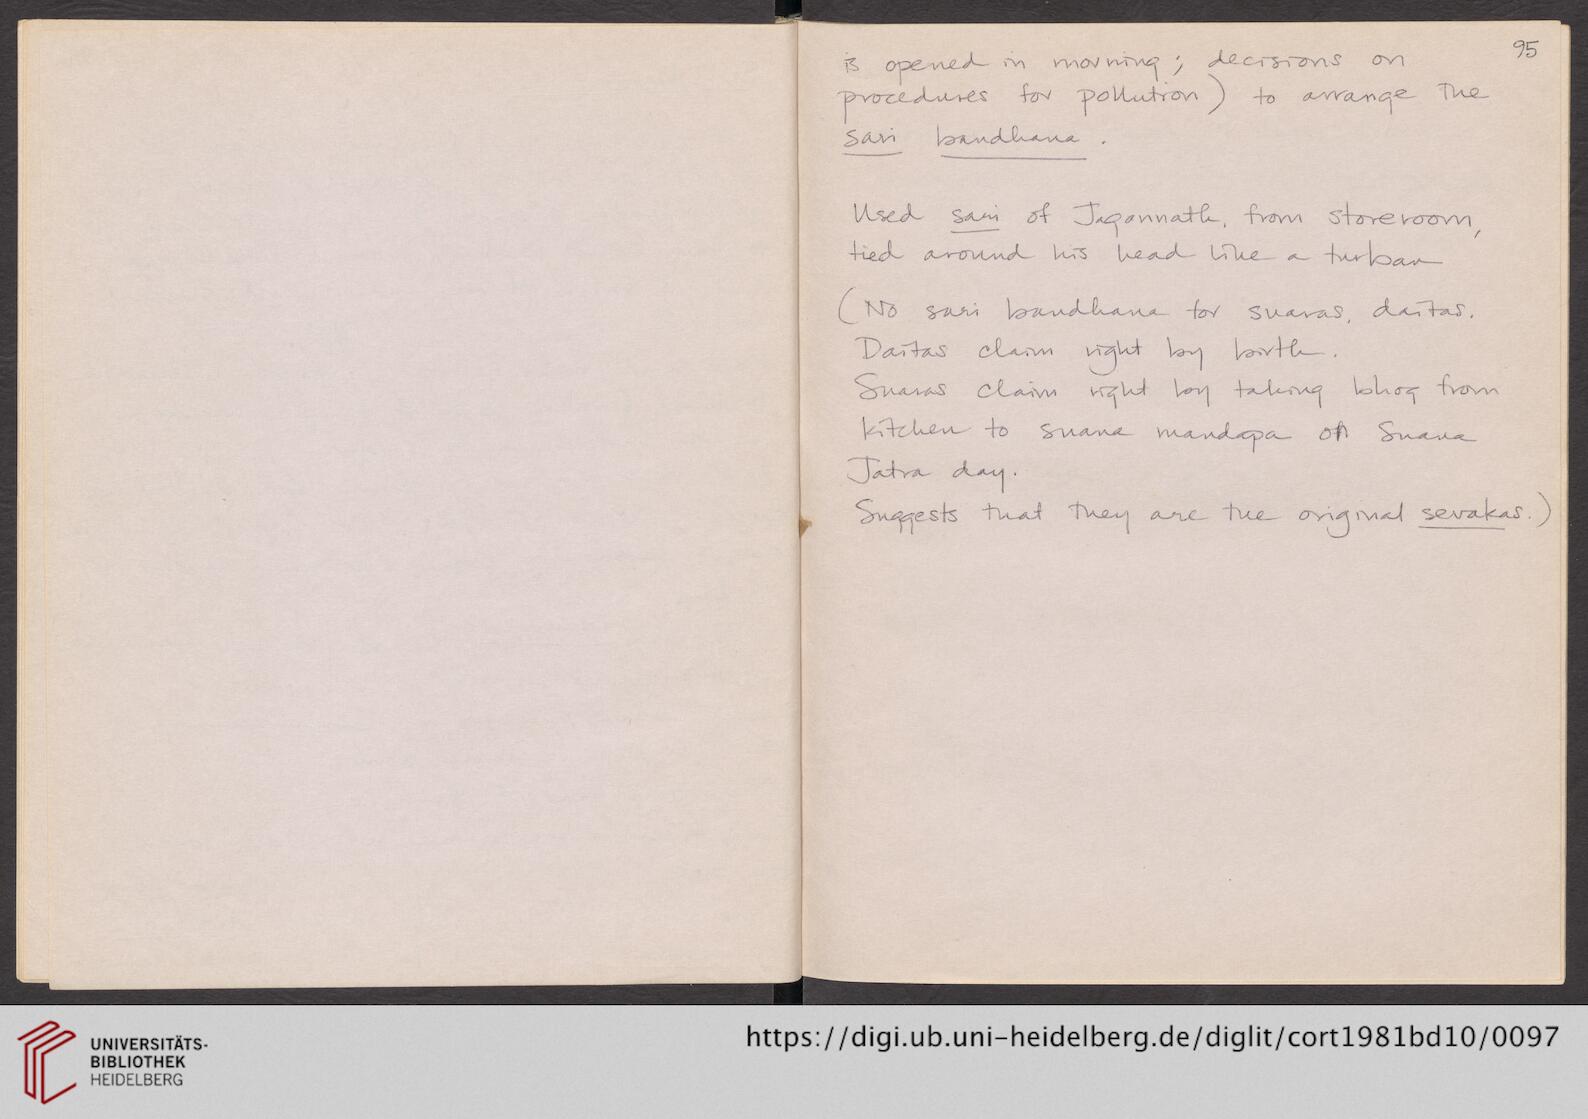 95
is opened in morning; decisions on
procedures for pollution) to arrange the
sari bandhana.
Used sari of Jagannath, from storeroom,
tied around his head like a turban
(No sari bandhana for suaras, daitas.
Daitas claim right by birth.
Suaras claim right by taking bhog from
kitchen to snana mandapa on Snana
Jatra day.
Suggests that they are the original sevakas.)
UNIVERSITÄTS-
BIBLIOTHEK
HEIDELBERG
https://digi.ub.uni-heidelberg.de/diglit/cort1981bd10/0097